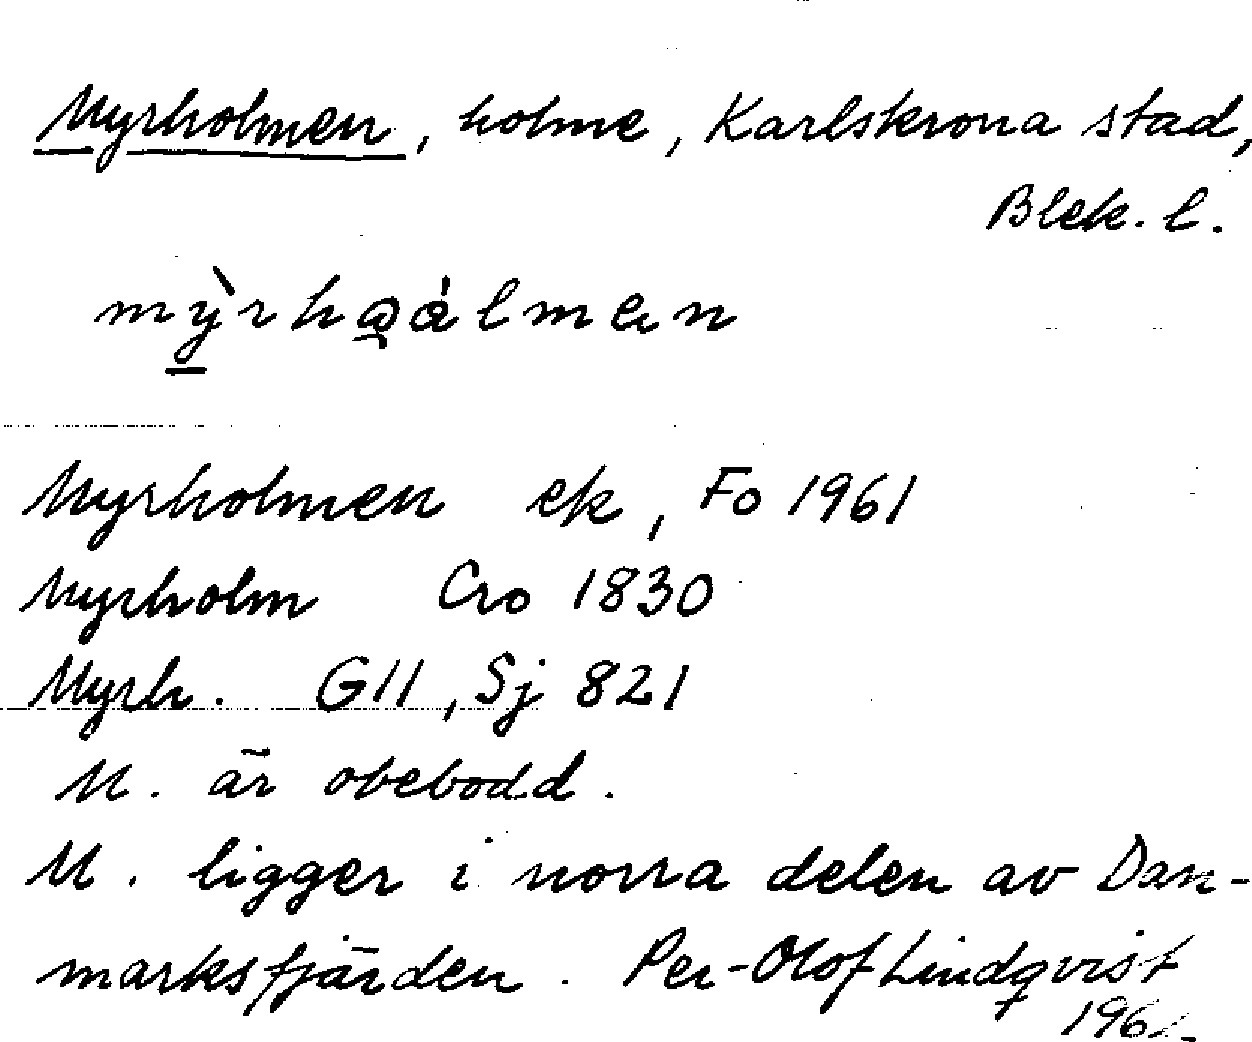 Myrholmen, holme, Karlskrona stad,
Blek. l.
Myrholmen ek, Fo 1961
Myrholm Cro 1830
Myrh. G11, Sj 821
M. är obebodd.
M. ligger i norra delen av Dan-
marksfjärden. Per-Olof Lindqvist